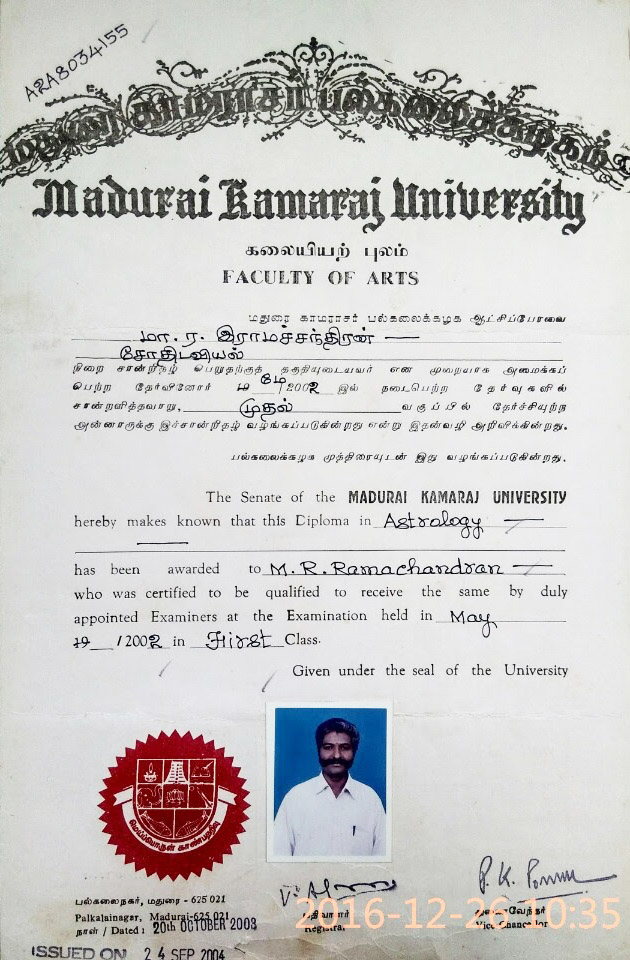 ARA8034155
மதுரை காமராசர் பல்கலைக்கழகம்
Madurai Kamaraj University
கலையியற் புலம்
FACULTY OF ARTS
மதுரை காமராசர் பல்கலைக்கழக ஆட்சிப்பேரவை
மா. ர. இராமச்சந்திரன் —
சோதிடவியல்
நிறை சான்றிதழ் பெறுதற்குத் தகுதியுடையவர் என முறையாக அமைக்கப்
பெற்ற தேர்வினோர் 19 மே /2002 இல் நடைபெற்ற தேர்வுகளில்
சான்றளித்தவாறு, முதல் வகுப்பில் தேர்ச்சியுற்ற
அன்னாருக்கு இச்சான்றிதழ் வழங்கப்படுகின்றது என்று இதன்வழி அறிவிக்கின்றது.
பல்கலைக்கழக முத்திரையுடன் இது வழங்கப்படுகின்றது.
The Senate of the MADURAI KAMARAJ UNIVERSITY
hereby makes known that this Diploma in Astrology —
has been awarded to M. R. Ramachandran —
who was certified to be qualified to receive the same by duly
appointed Examiners at the Examination held in May
19 /2002 in First Class.
Given under the seal of the University
மெய்ப்பொருள் காண்பதறிவு
பல்கலைநகர், மதுரை - 625 021
Palkalainagar, Madurai-625 021
நாள் / Dated : 20th OCTOBER 2003
ISSUED ON 24 SEP 2004
பதிவாளர்
Registrar
P. K. Ponnu
துணைவேந்தர்
Vice-Chancellor
2016-12-26 10:35